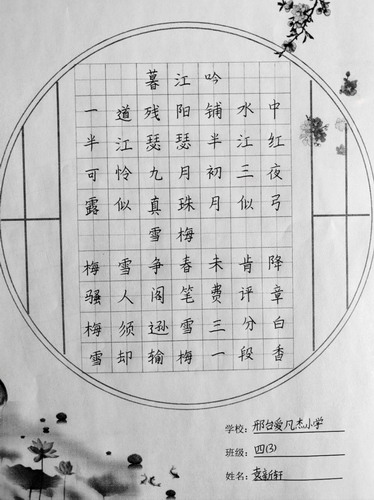 暮江吟
一道残阳铺水中
半江瑟瑟半江红
可怜九月初三夜
露似真珠月似弓
雪梅
梅雪争春未肯降
骚人阁笔费评章
梅须逊雪三分白
雪却输梅一段香
学校：邢台爱凡杰小学
班级：四(3)
姓名：袁新轩